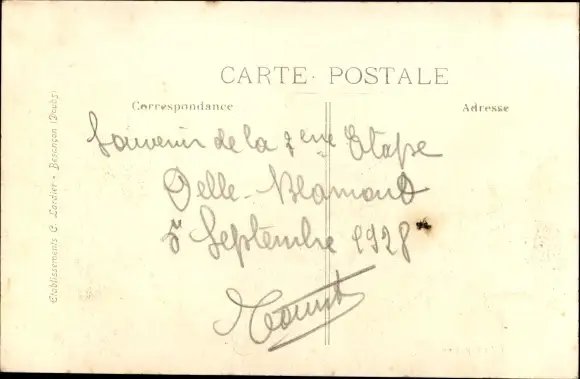 CARTE POSTALE
Correspondance
Adresse
Souvenir de la 7eme Etape
Delle-Blamont
5 Septembre 1928
Etablissements C. Lardier - Besançon (Doubs)